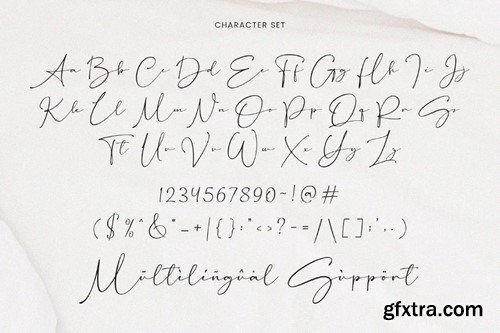 CHARACTER SET
Aa Bb Cc Dd Ee Ff Gg Hh Ii Jj
Kk Ll Mm Nn Oo Pp Qq Rr Ss
Tt Uu Vv Ww Xx Yy Zz
1234567890~!@#
($%^&*_+|{}:"<>?-=/\[];',.)
Mültilïñgûàl Sùppört
gfxtra.com